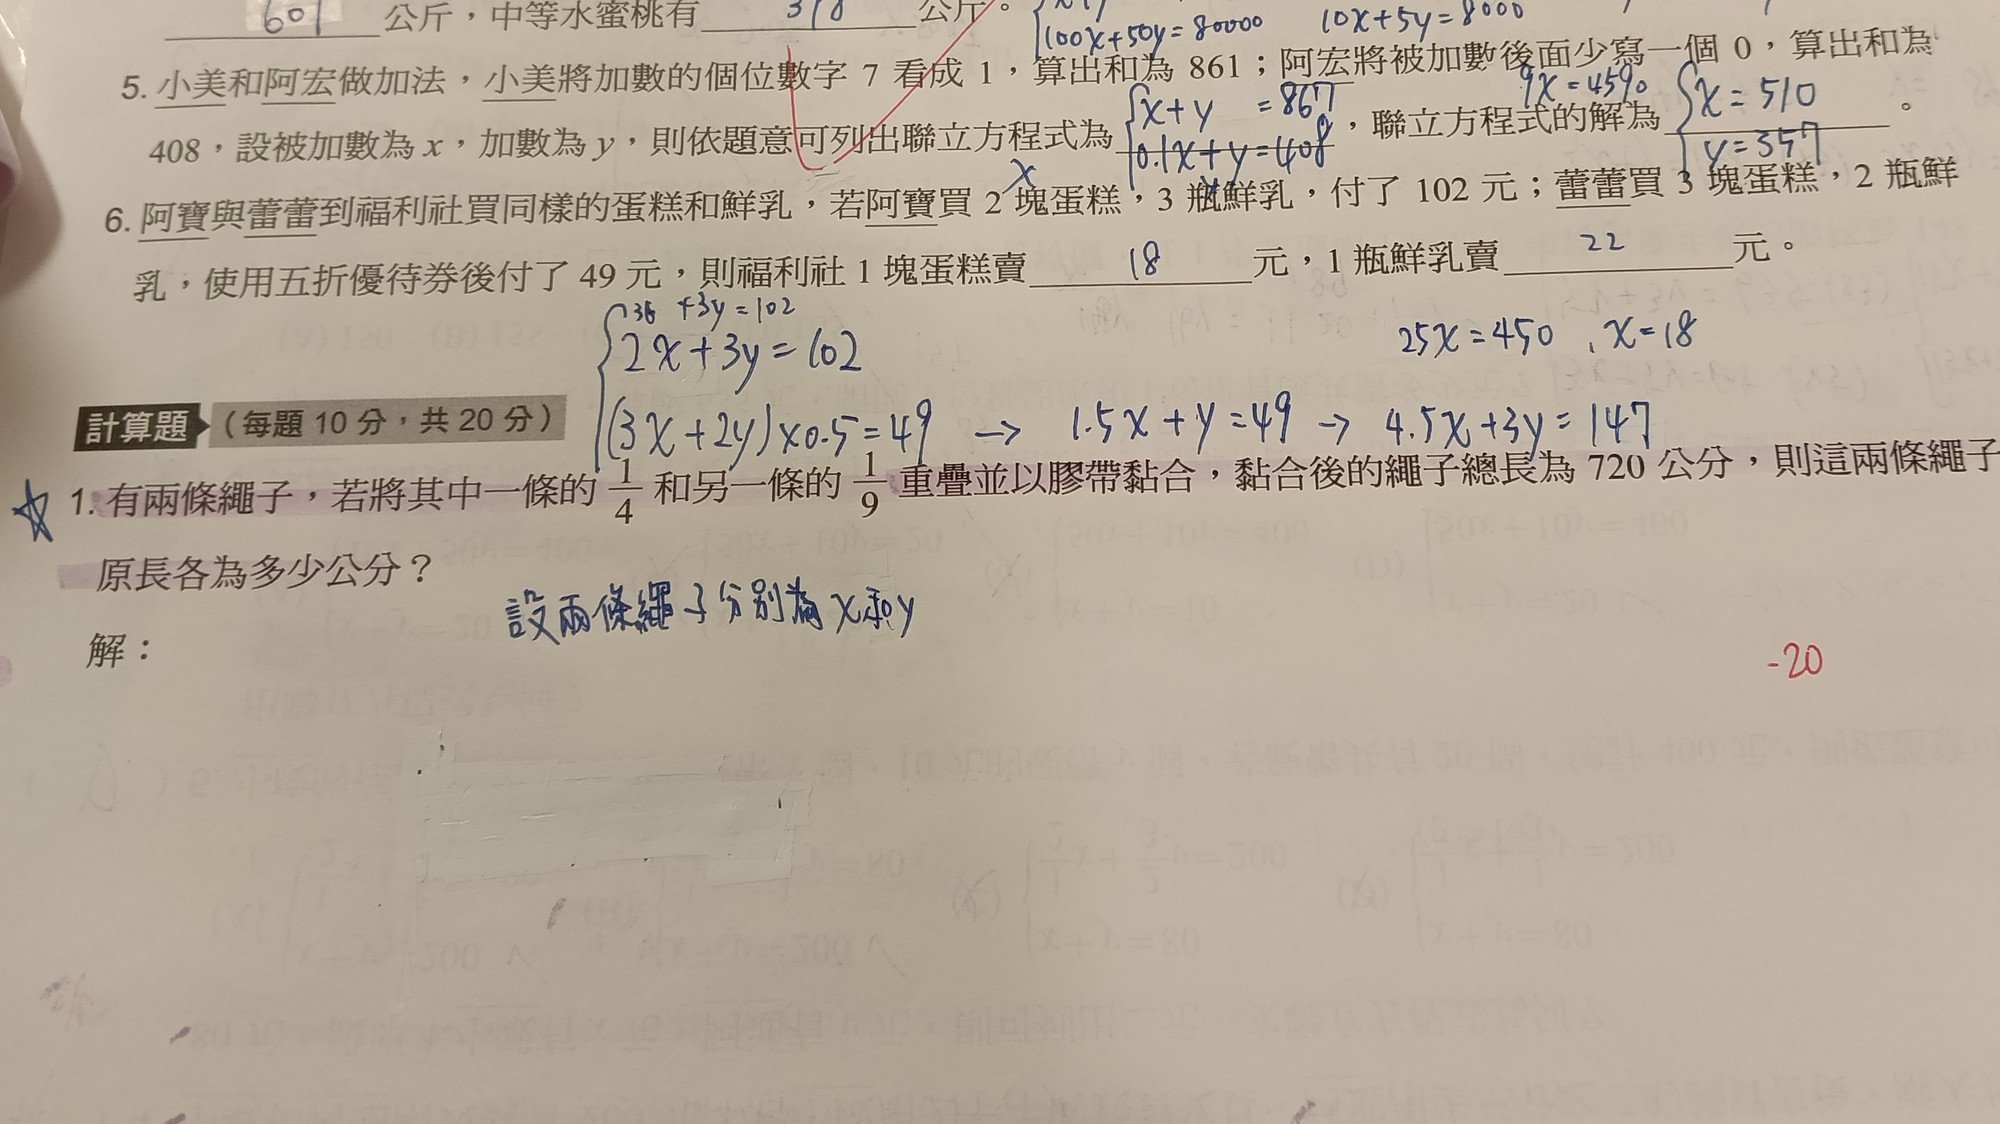 601 公斤,中等水蜜桃有 318 公斤。
100x+50y=80000 10x+5y=8000
5. 小美和阿宏做加法,小美將加數的個位數字 7 看成 1,算出和為 861;阿宏將被加數後面少寫一個 0,算出和為
9x=4590
408,設被加數為 x,加數為 y,則依題意可列出聯立方程式為 { x+y =867 0.1x+y=408 ,聯立方程式的解為 { x=510 y=357 。
6. 阿寶與蕾蕾到福利社買同樣的蛋糕和鮮乳,若阿寶買 2 塊蛋糕,3 瓶鮮乳,付了 102 元;蕾蕾買 3 塊蛋糕,2 瓶鮮
乳,使用五折優待券後付了 49 元,則福利社 1 塊蛋糕賣 18 元,1 瓶鮮乳賣 22 元。
36 +3y=102
2x+3y=102 25x=450 , x=18
(3x+2y)x0.5=49 → 1.5x+y=49 → 4.5x+3y=147
計算題 (每題 10 分,共 20 分)
1. 有兩條繩子,若將其中一條的 1/4 和另一條的 1/9 重疊並以膠帶黏合,黏合後的繩子總長為 720 公分,則這兩條繩子
原長各為多少公分?
設兩條繩子分別為x和y
解:
-20